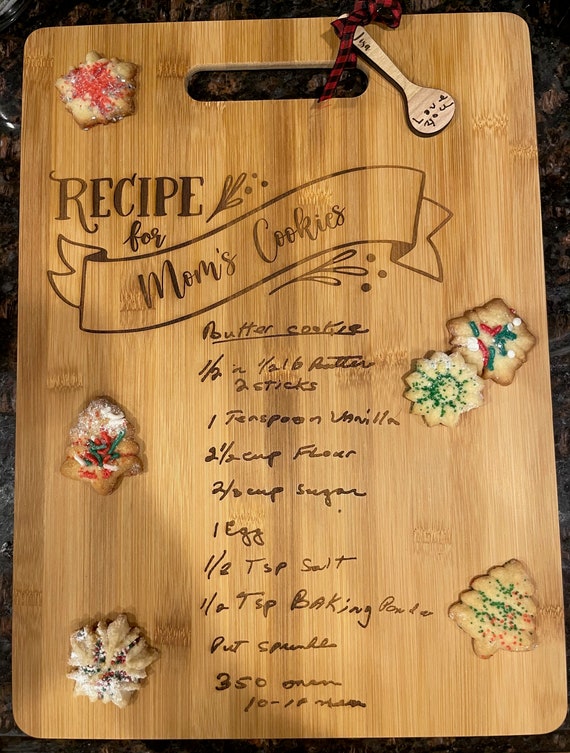 Lisa
Love
you
RECIPE
for
Mom's Cookies
Butter cookie
1/2 1/2 lb Butter
2 sticks
1 Teaspoon Vanilla
2 1/2 cup Flour
2/3 cup sugar
1 Egg
1/2 Tsp Salt
1/2 Tsp BAKing
Put sprinkle
350 oven
10-